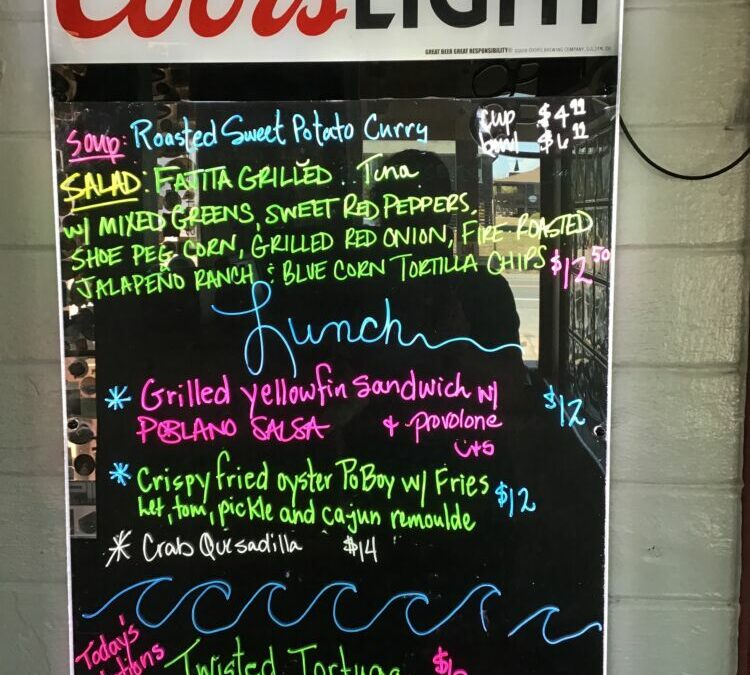 Coors LIGHT
GREAT BEER GREAT RESPONSIBILITY
Soup: Roasted Sweet Potato Curry cup $4.99
bowl $6.99
SALAD: FAJITA GRILLED .. Tuna
w/ MIXED GREENS, SWEET RED PEPPERS,
SHOE PEG CORN, GRILLED RED ONION, FIRE ROASTED
JALAPEÑO RANCH & BLUE CORN TORTILLA CHIPS $12.50
Lunch
* Grilled yellowfin Sandwich w/ $12
POBLANO SALSA + provolone
* Crispy fried oyster PoBoy w/ Fries $12
Let, tom, pickle and cajun remoulde
* Crab Quesadilla $14
Today's
Twisted Tortuga